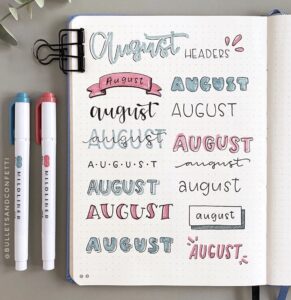 August
HEADERS
August
AUGUST
august
AUGUST
AUGUST
august
AUGUST
A·U·G·U·S·T
august
AUGUST
august
AUGUST
august
AUGUST
AUGUST
MILDLINER
MILDLINER
@BULLETSANDCONFETTI